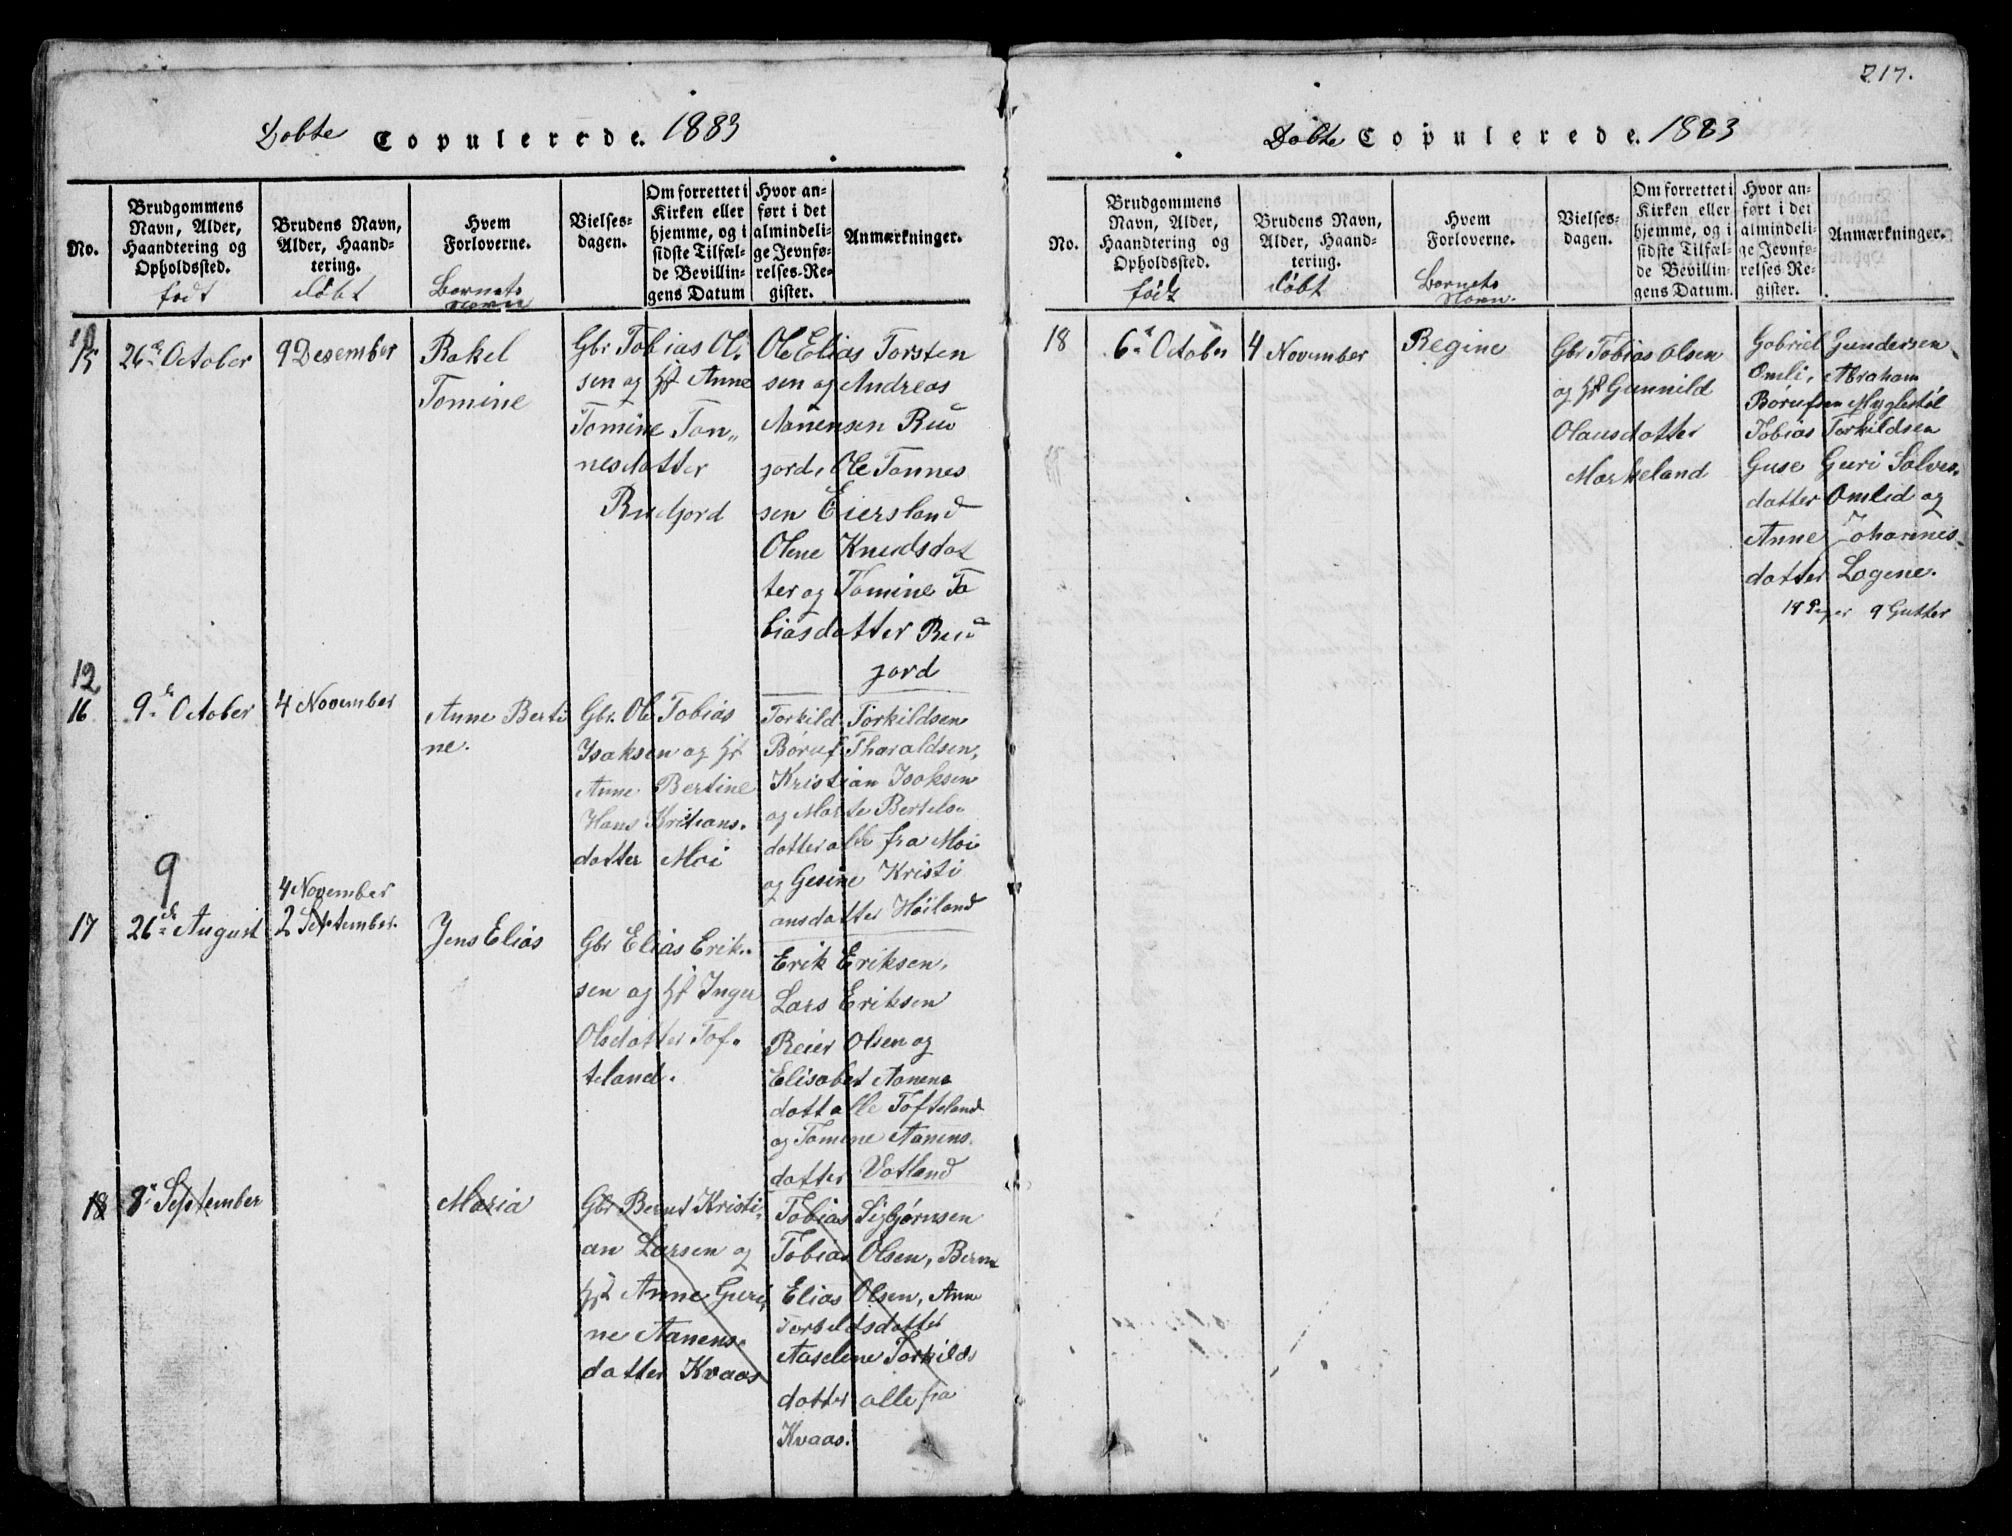 217.
Døbte Copulerede. 1883
No.
Brudgommens
Navn, Alder,
Haandtering og
Opholdssted.
født
Brudens Navn,
Alder, Haand-
tering.
døbt
Hvem
Forloverne.
Barnets
Navn
Vielses-
dagen.
Om forrettet i
Kirken eller
hjemme, og i
sidste Tilfæl-
de Bevillin-
gens Datum
Hvor an-
ført i det
almindeli-
ge Jevnfø-
relses-Re-
gister.
Anmærkninger.
15
26de October
9 Desember
Rakel
Tomine
Gbr Tobias Ol-
sen og Hst Anne
Tomine Tøn-
nesdatter
Rudjord
Ole Elias Torsten
sen og Andreas
Aanensen Rud
jord, Ole Tønnes
sen Eiersland
Olene Knudsdat
ter og Tomine To
biasdatter Rud
jord
12
16
9de October
4 November
Anne Berti
ne.
Gbr. Ole Tobias
Isaksen og Hst
Anne Bertine
Hans Kritians-
datter Moi
Torkild Torkildsen
Børuf Tharaldsen,
Kristian Isaksen
og Marte Bertels-
datter alle fra Moi
og Gesine Kristi
ansdatter Høiland
9
17
26de August
4 November
2 September.
Jens Elias
Gbr Elias Erik-
sen og Hst Inger
Olsdatter Tof-
teland.
Erik Eriksen,
Lars Eriksen
Reier Olsen og
Elisabet Aanens
datt alle Tofteland
og Tomine Aanens
datter Vatland
18
8de September
Maria
Gbr Bernt Kristi-
an Larsen og
Hst Anne Guri
ne Aanens-
datter Kvaas
Tobias Sigbjørnsen
Tobias Olsen, Bernt
Elias Olsen, Anne
Torkildsdatter
Aaselene Torkilds
datter alle fra
Kvaas.
Døbte Copulerede. 1883
No.
Brudgommens
Navn, Alder,
Haandtering og
Opholdssted.
født
Brudens Navn,
Alder, Haand-
tering.
døbt
Hvem
Forloverne.
Barnets
Navn.
Vielses-
dagen.
Om forrettet i
Kirken eller
hjemme, og i
sidste Tilfæl-
de Bevillin-
gens Datum.
Hvor an-
ført i det
almindeli-
ge Jevnfø-
relses Re-
gister.
Anmærkninger.
18
6te October
4 November
Regine
Gbr Tobias Olsen
og Hst Gunnild
Olausdatter
Markeland
Gabriel Gundersen
Omli, Abraham
Børufsen Myglestøl
Tobias Torkildsen
Guse Guri Salves-
datter Omlid og
Anne Johannes-
datter Lagene.
18 Piger 9 Gutter